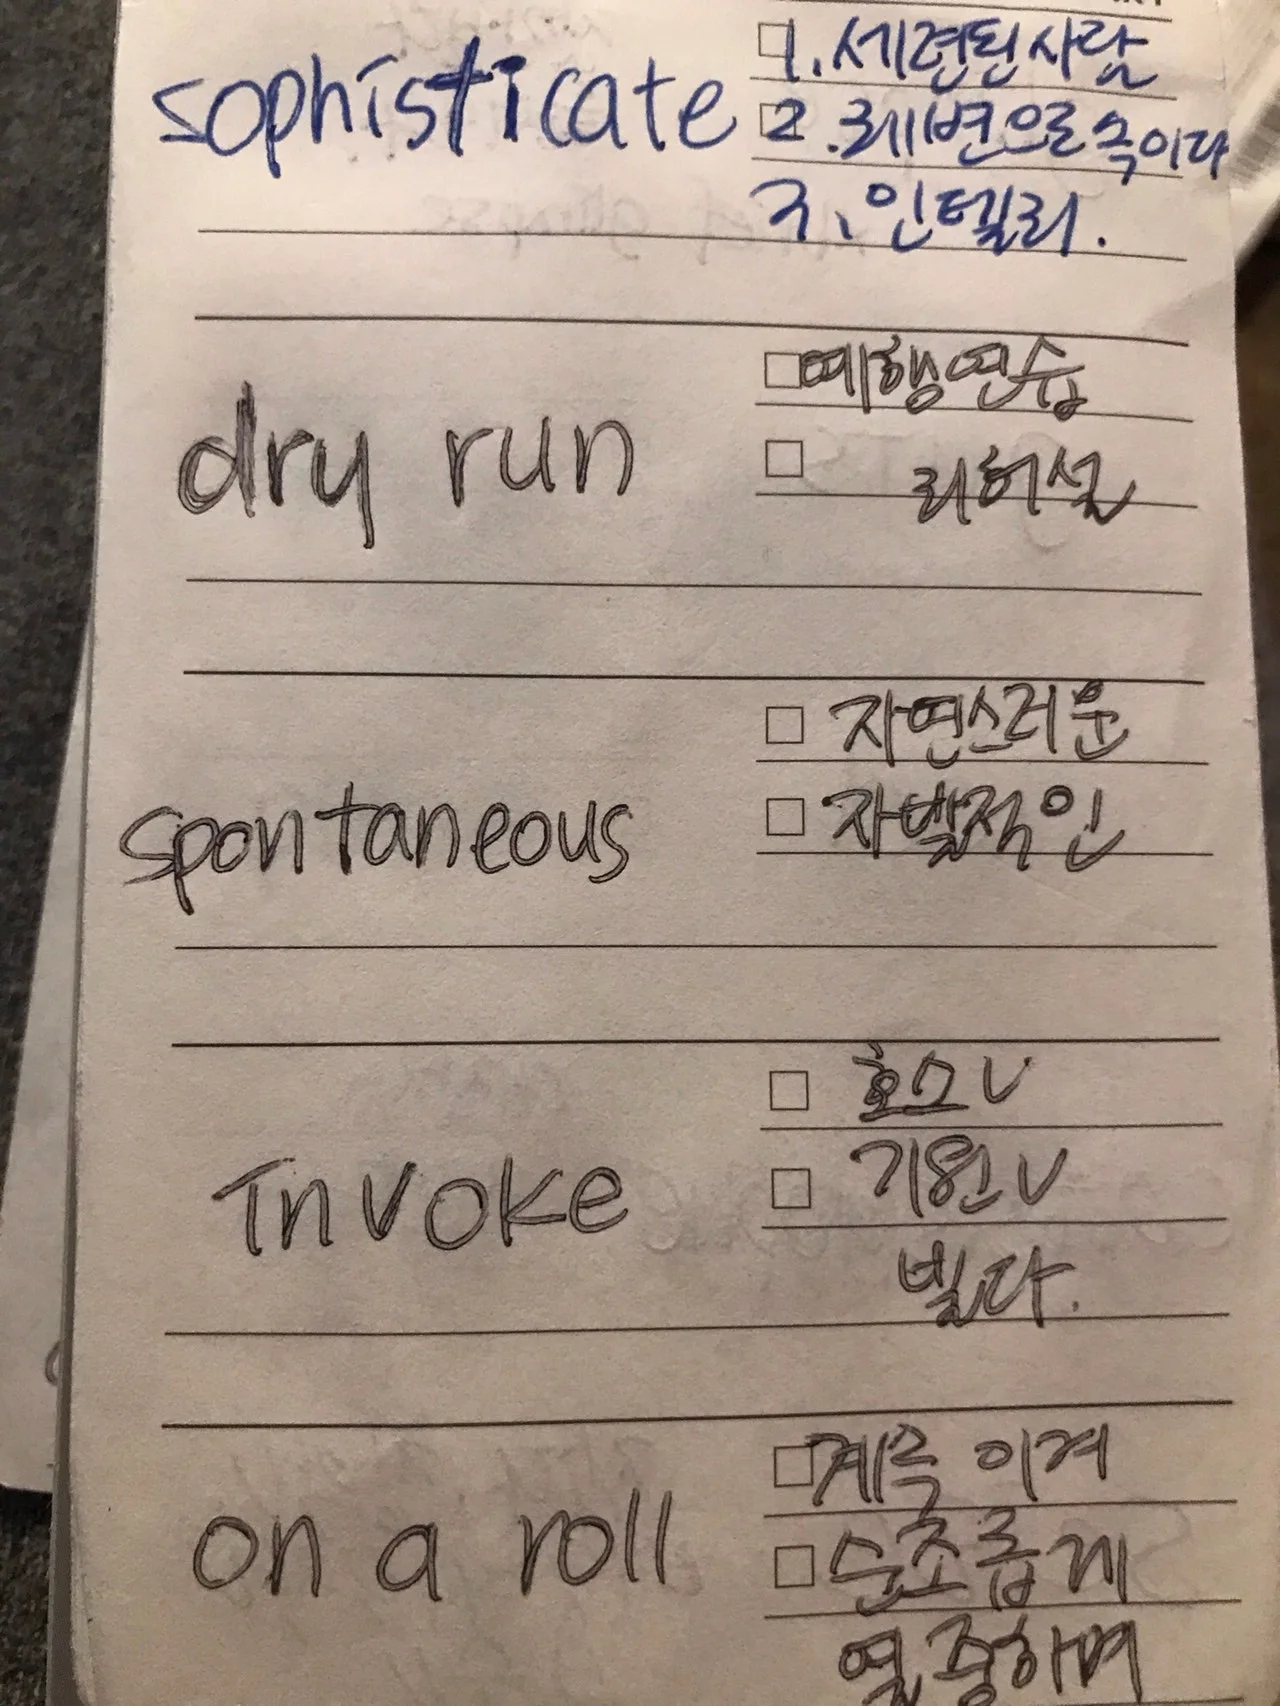 sophisticate
1. 세련된 사람
2. 궤변으로 속이다
3. 인텔리.
dry run
예행연습
리허설
spontaneous
자연스러운
자발적인
invoke
호소 V
기원 V
빌다.
on a roll
계속 이겨
순조롭게
열중하며